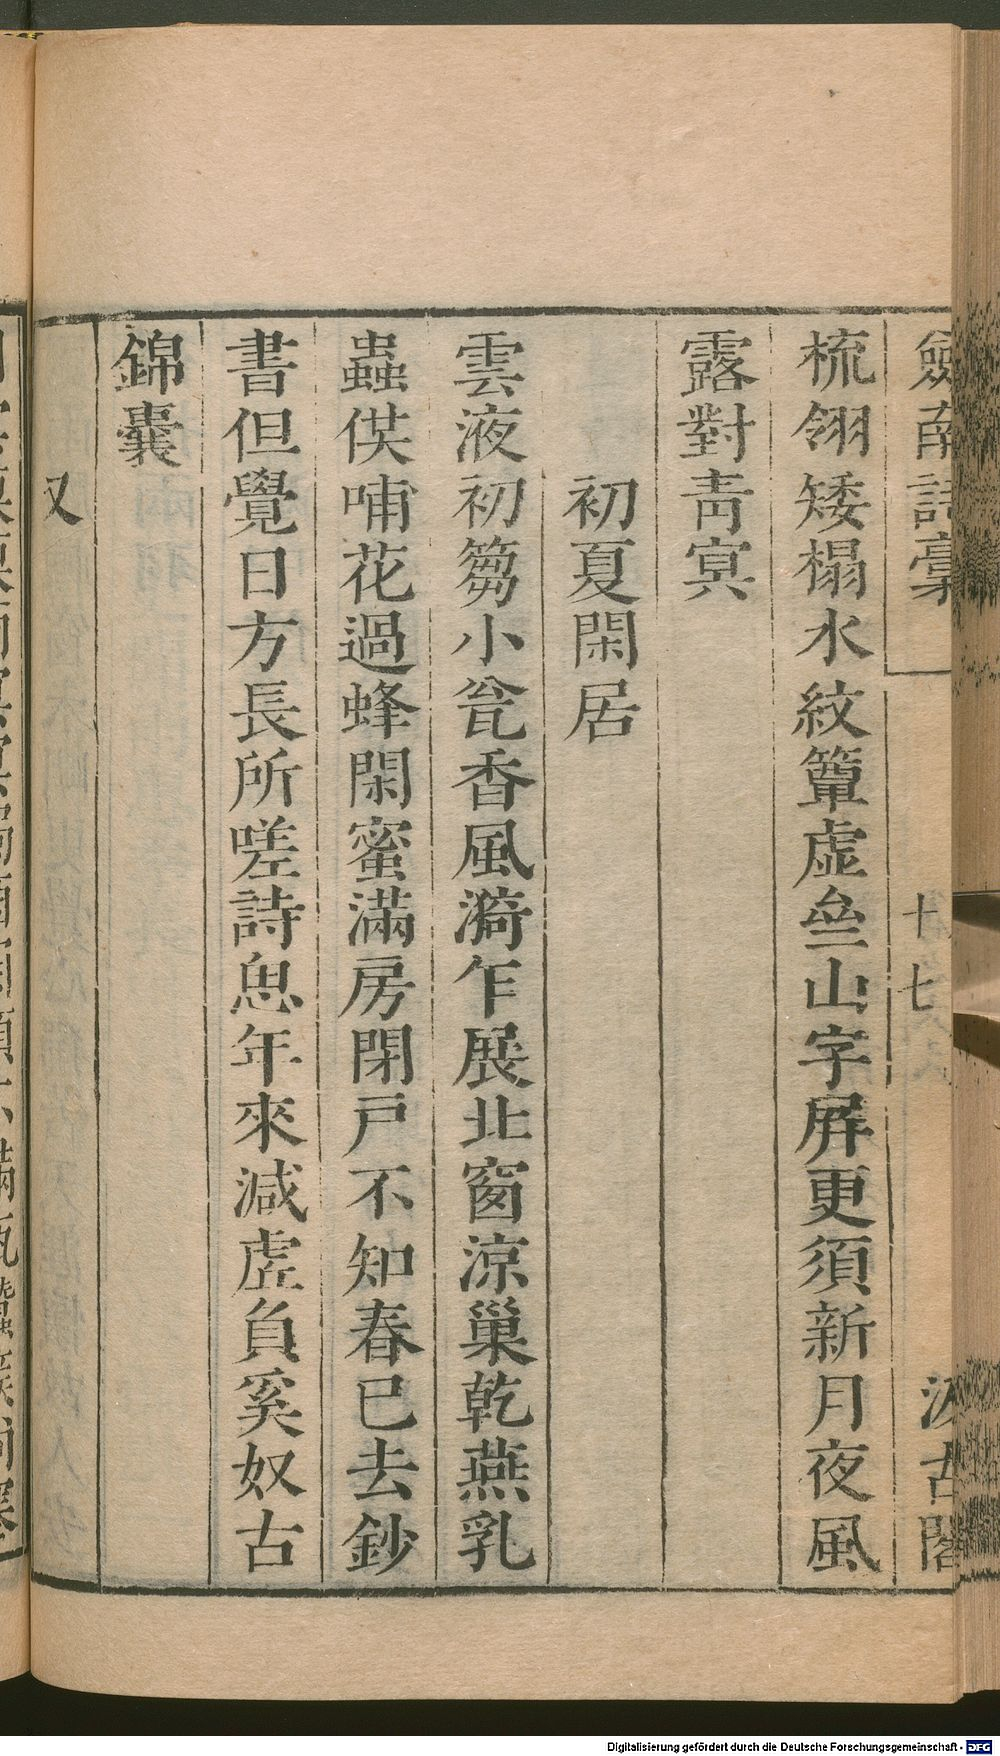 劔南詩槀
十七
汲古閣
梳翎矮榻水紋簟虛叠山字屏更須新月夜風
露對靑冥
初夏閑居
雲液初篘小瓮香風漪乍展北窗涼巢乾燕乳
蟲供哺花過蜂閑蜜滿房閉戸不知春已去鈔
書但覺日方長所嗟詩思年來減虗負奚奴古
錦囊
又
Digitalisierung gefördert durch die Deutsche Forschungsgemeinschaft - DFG